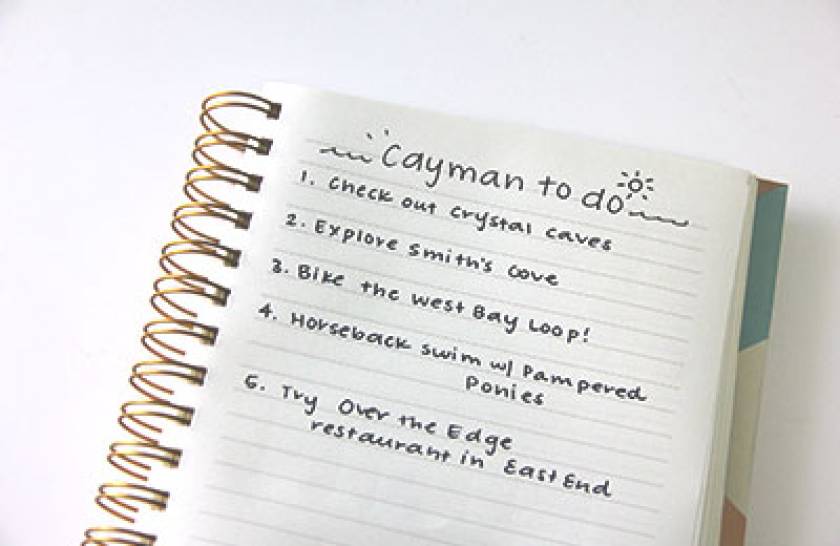 Cayman to do
1. Check out crystal caves
2. Explore Smith's Cove
3. Bike the West Bay Loop!
4. Horseback swim w/ Pampered
Ponies
5. Try Over the Edge
restaurant in East End